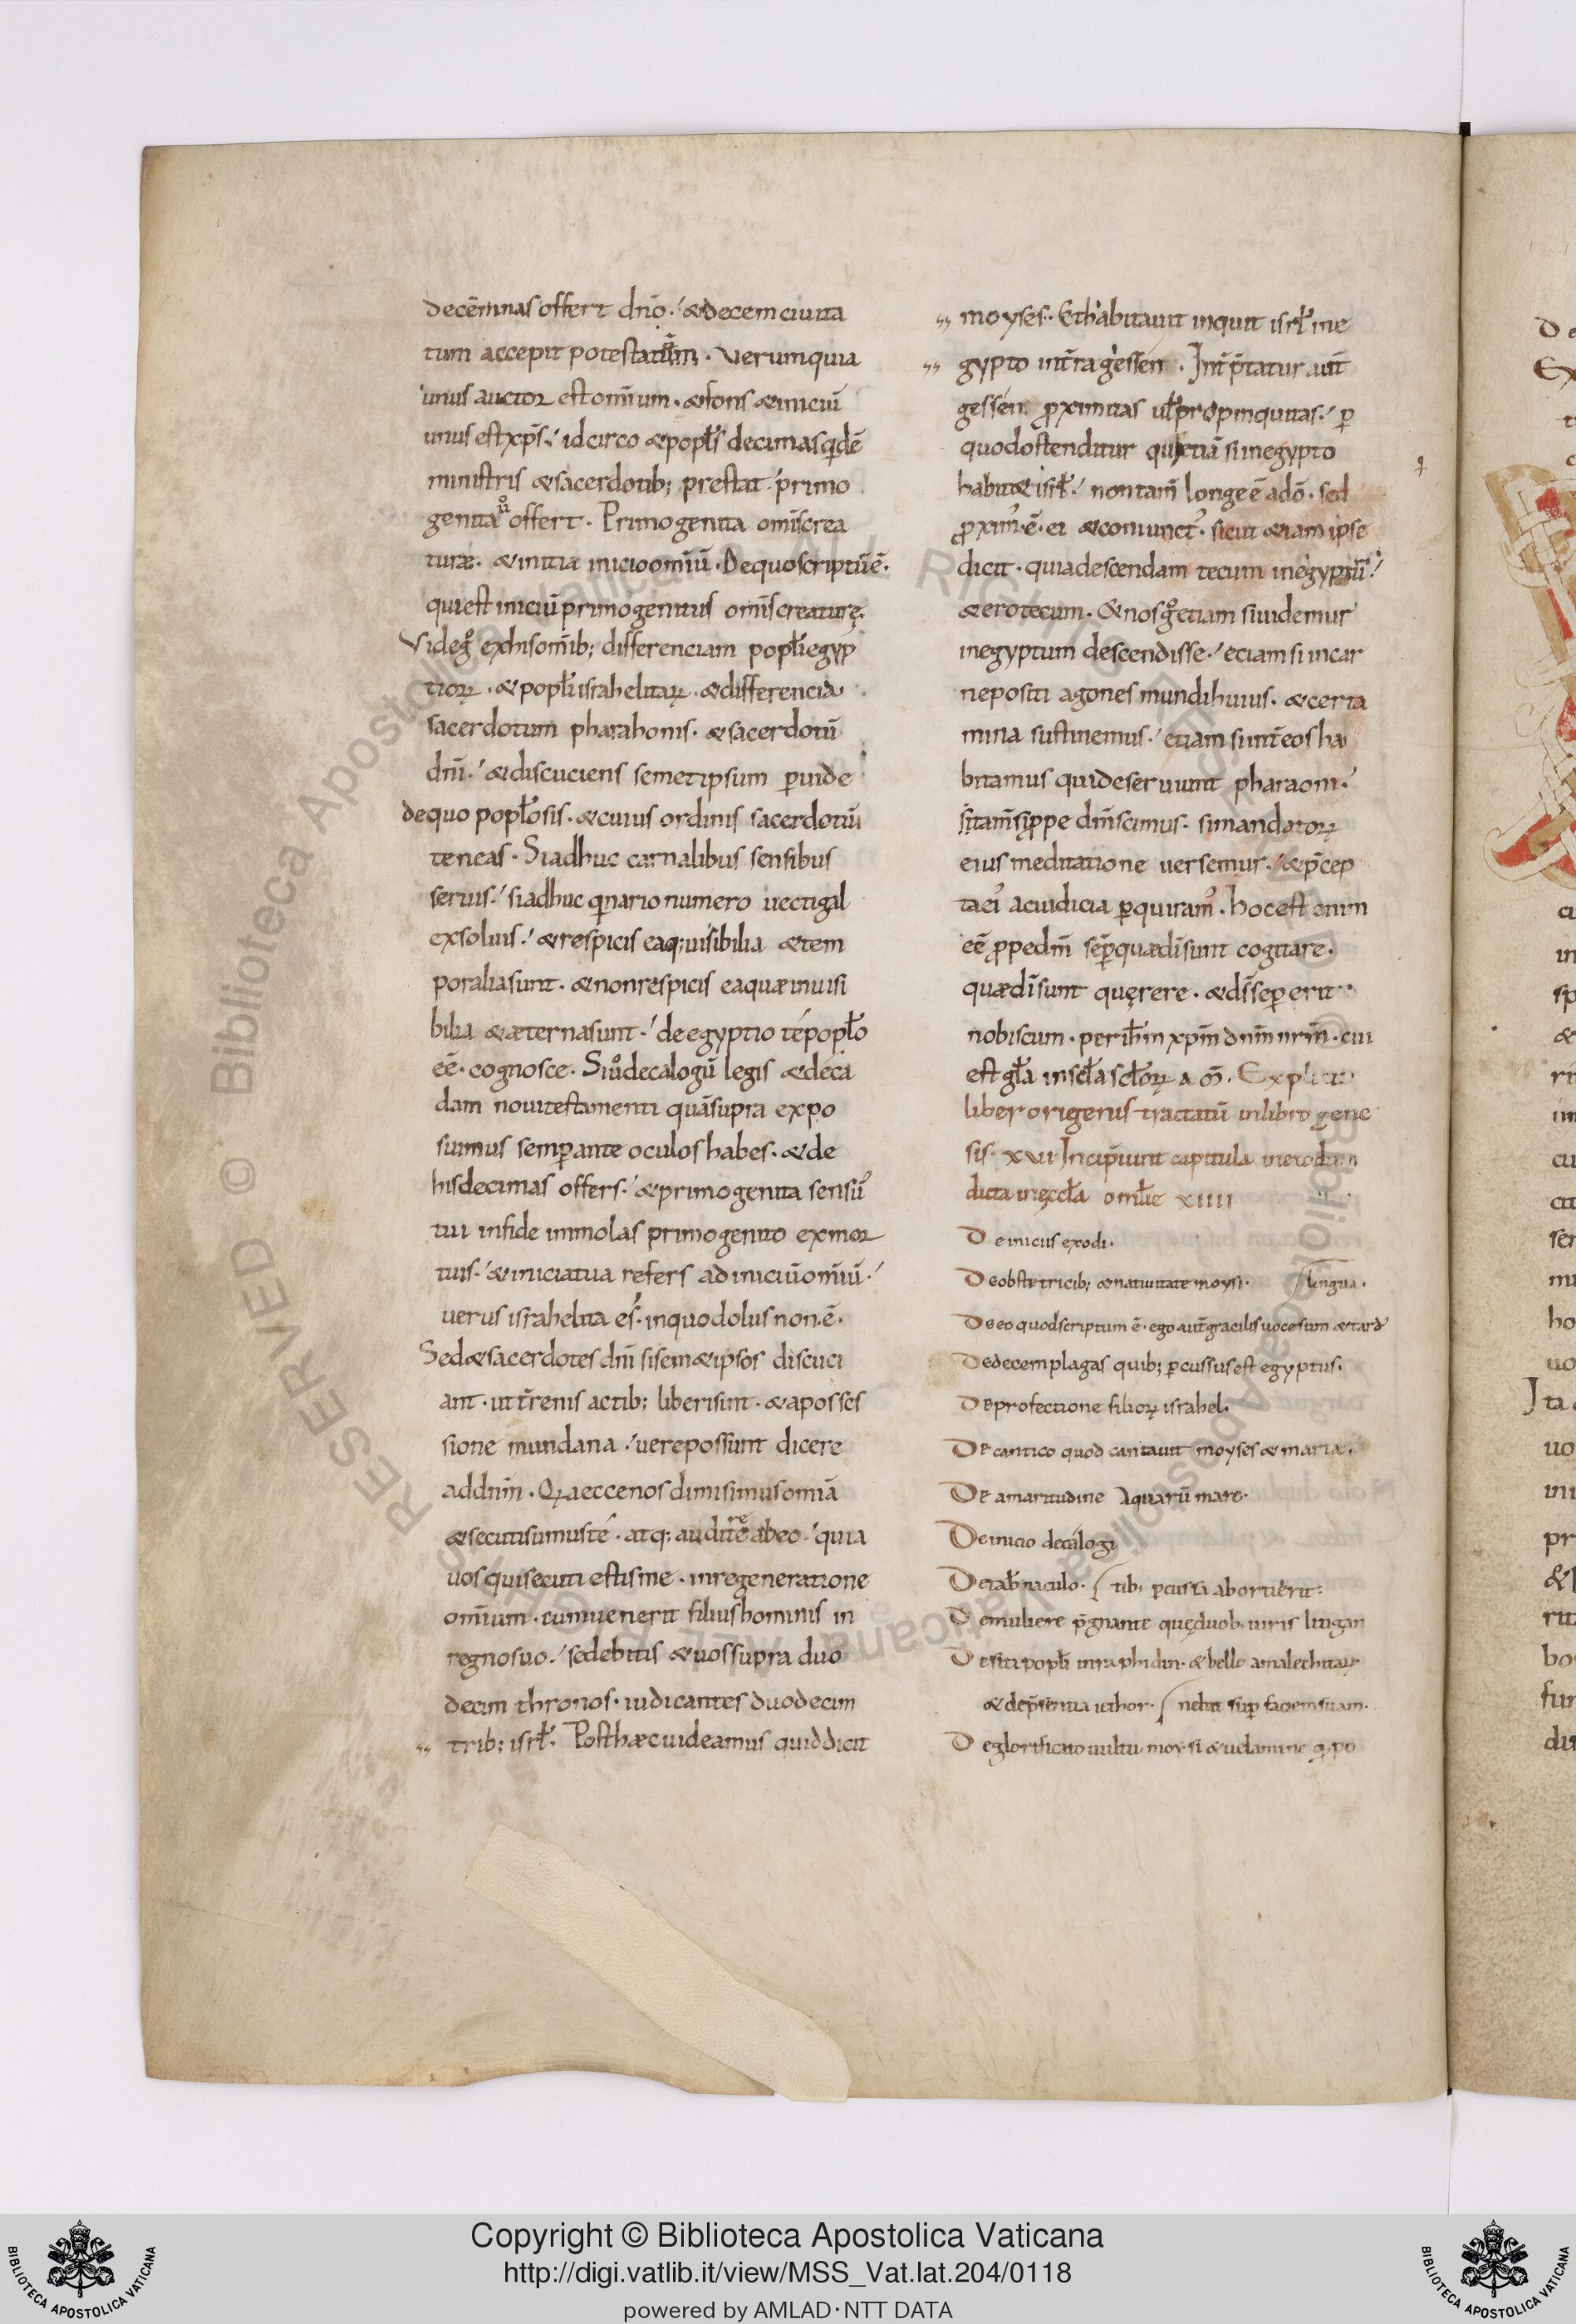 decēmnas offert dnō. & decem ciuita
tum accepit potestatem. Verum quia
unus auctor est omnium. & fons & iniciū
unus est xps. idcirco & popls decimas qdē
ministris & sacerdotib; prestat primo
genita offert. Primogenita omis crea
turæ. & initia inicio omiū. De quo scriptū ē.
qui est iniciū primogenitus omis creaturę.
Vide g exhis omib; differenciam popli egyp
tiorꝝ. & popli israhelitaꝝ. & differencia
sacerdotum pharahonis. & sacerdotū
dni. & discuciens semetipsum puide
de quo poplo sis. & cuius ordinis sacerdotiū
teneas. Si adhuc carnalibus sensibus
seruis. si adhuc qinario numero uectigal
exsoluis. & respicis ea q; uisibilia & tem
poralia sunt. & non respicis ea quæ inuisi
bilia & æterna sunt. de egyptio té poplo
eē. cognosce. Si u decalogū legis & deca
dam noui testamenti quā supra expo
suimus semp ante oculos habes. & de
his decimas offers. & primogenita sensū
tui in fide immolas primogenito ex mor
tuis. & inicia tua refers ad iniciū omiū.
uerus israhelita es. in quo dolus non ē.
Sed & sacerdotes dni si sem&ipsos discuci
ant. ut trenis actib; liberi sint. & aposses
sione mundana. uere possunt dicere
ad dnm. Quia ecce nos dimisimus omia
& secuti sumus té. atq; audire abeo. quia
uos qui secuti estis me. in regeneratione
omnium. cum uenerit filius hominis in
regno suo. sedebitis & uos supra duo
decim thronos. iudicantes duodecim
trib; isrl. Post hæc uideamus quid dicit
moyses. Et habitauit inquit isrl in e
gypto in tra gessen. Int̄p̄tatur aut̄
gessen. proximitas ul propinquitas. p
quod ostenditur quia etiā si in egypto
habit& isrl. non tam longe ē a dō. sed
proxim' ē. ei & coniunct'. sicut & iam ipse
dicit. quia descendam tecum in egyptū.
& ero tecum. & nos g etiam si uidemur
in egyptum descendisse. eciam si in car
ne positi agones mundi huius. & certa
mina sustinemus. etiam si int̄ eos ha
bitamus qui deseruiunt pharaoni.
si tam sippe dm scimus. si mandatorꝝ
eius meditatione uersemur. & p̄cep
ta ei' ac iudicia pquiram'. hoc est enim
eē ppe dm̄ sēp quæ di sunt cogitare.
quæ di sunt quęrere. & ds semper erit
nobiscum. per ihm xpm dnm nrm. cui
est gla in scla sclorꝝ amn. Explicit
liber origenis tractatū in libro gene
sis. xvii. Incipiunt capitula in exodum
dicta in ęccla omlie xiiii
De inicus exodi.
De obstetricib; & natiuitate moysi. lingua.
De eo quod scriptum ē. ego aut̄ gracilis uoce sum & tard'
De decem plagas quib; pcussus est egyptus.
De profectione filiorꝝ israhel.
De cantico quod cantauit moyses & maria.
De amaritudine Aquarū mare.
De inicio decálogi
De tab̄naculo. tib; pcusa abortierit:
De muliere p̄gnante quę duob. uiris litigan
De siti popli in raphidin. & bello amalechitarꝝ
& de p̄sentia iethor. nebat sup faciem suam.
De glorificato uultu moysi & uelamine q po
Copyright © Biblioteca Apostolica Vaticana
http://digi.vatlib.it/view/MSS_Vat.lat.204/0118
powered by AMLAD·NTT DATA